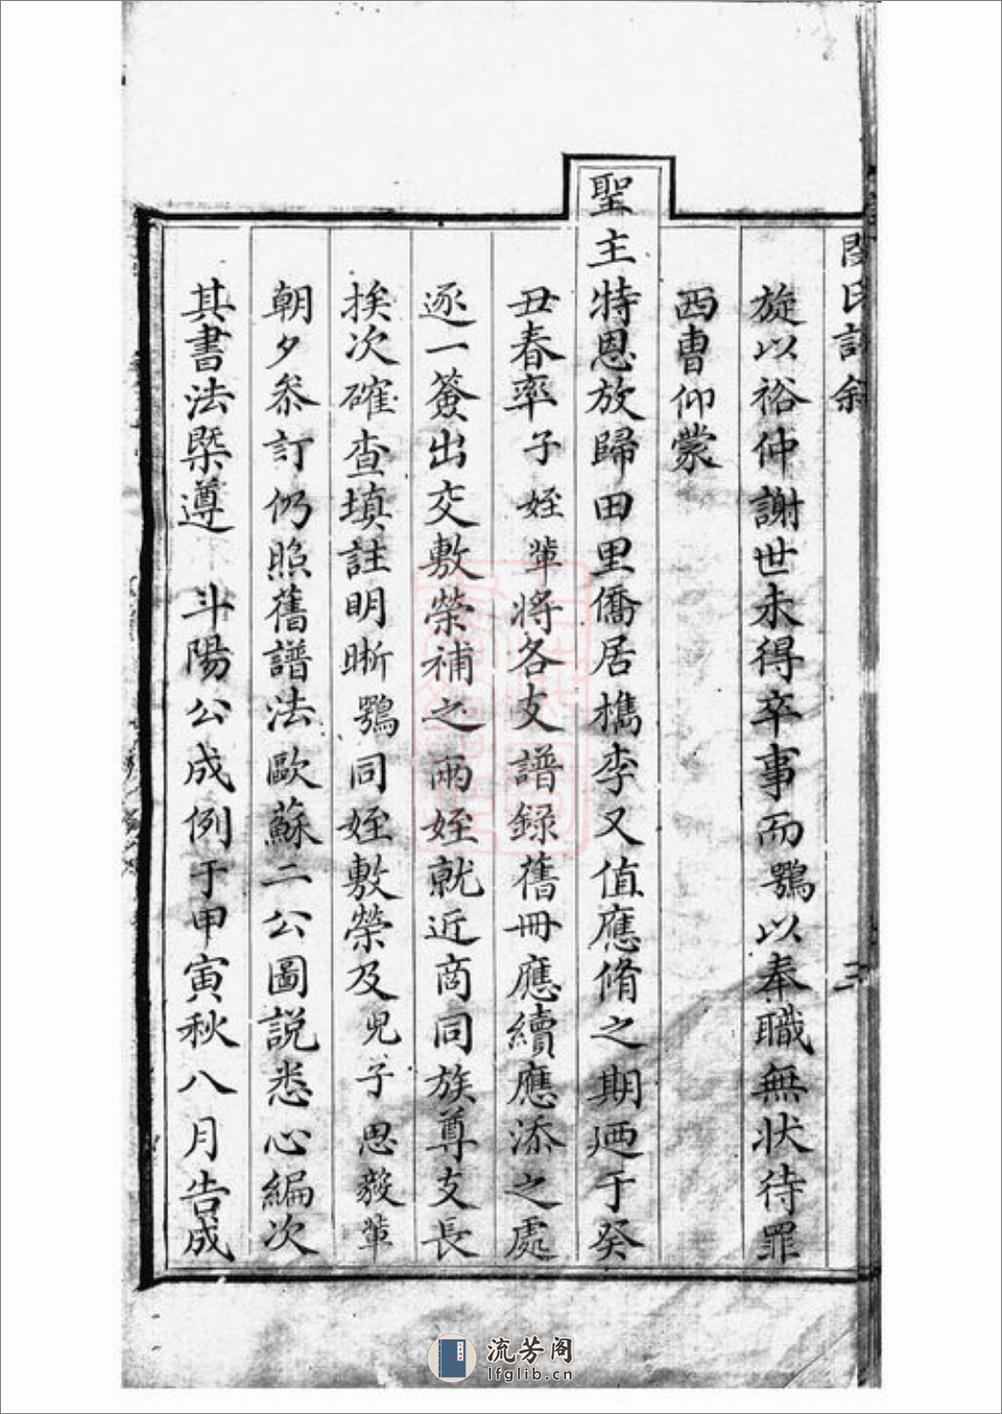 旋以裕仲謝世未得卒事而鶚以奉職無狀待罪
西曹仰蒙
聖主特恩放歸田里僑居檇李又值應脩之期廼于癸
丑春率子姪輩將各支譜錄舊冊應續應添之處
逐一簽出交敷榮補之兩姪就近商同族尊支長
挨次確查填註明晰鶚同姪敷榮及兒子思毅輩
朝夕叅訂仍照舊譜法歐蘇二公圖說悉心編次
其書法槩遵 斗陽公成例于甲寅秋八月告成
三
流芳阁
lfglib.cn